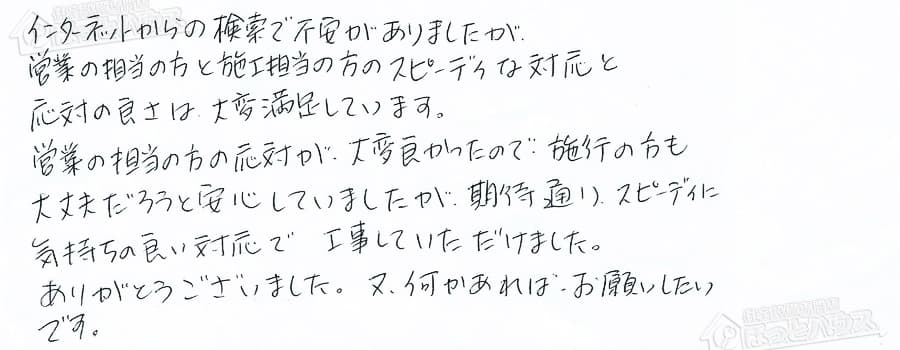 インターネットからの検索で不安がありましたが、
営業の担当の方と施工担当の方のスピーディな対応と
応対の良さは、大変満足しています。
営業の担当の方の応対が、大変良かったので、施行の方も
大丈夫だろうと安心していましたが、期待通り、スピーディに
気持ちの良い対応で 工事していただけました。
ありがとうございました。又、何かあれば、お願いしたい
です。